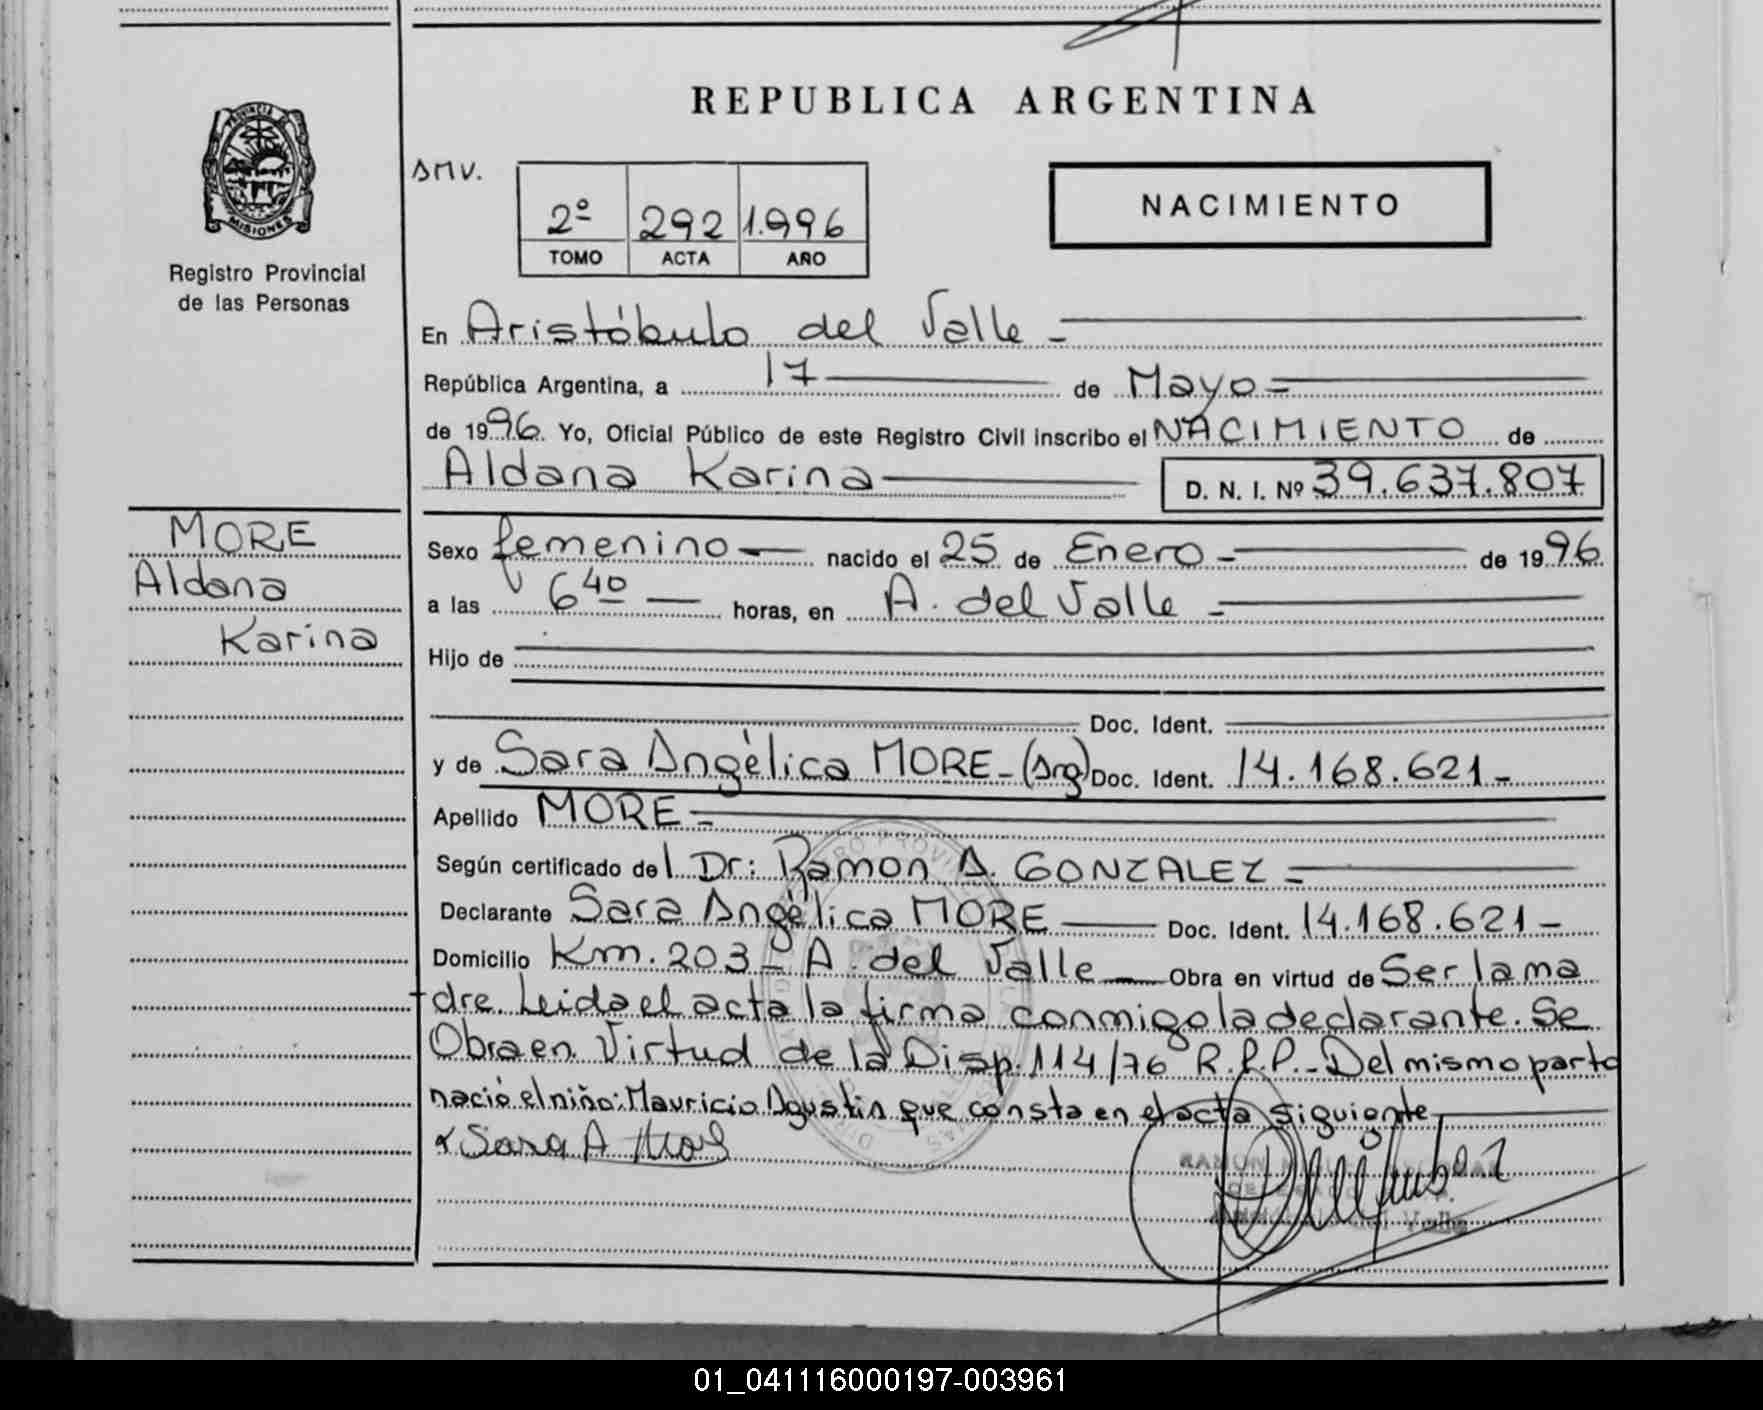 REPUBLICA ARGENTINA
PROVINCIA DE
MISIONES
Registro Provincial
de las Personas
SMV.
2º 292 1.996
TOMO ACTA AÑO
NACIMIENTO
En Aristóbulo del Valle -
República Argentina, a 17 de Mayo =
de 1996. Yo, Oficial Público de este Registro Civil inscribo el NACIMIENTO de
Aldana Karina D. N. I. Nº 39.637.807
MORE
Aldana
Karina
Sexo femenino nacido el 25 de Enero - de 1996.
a las 6 40 horas, en A. del Valle -
Hijo de
Doc. Ident.
y de Sara Angélica MORE - (Arg) Doc. Ident. 14.168.621 -
Apellido MORE -
Según certificado del Dr: Ramon A. GONZALEZ -
Declarante Sara Angélica MORE Doc. Ident. 14.168.621 -
Domicilio Km. 203 - A. del Valle Obra en virtud de Ser la ma
dre. Leida el acta la firma conmigo la declarante. Se
Obra en Virtud de la Disp. 114/76 R.P.P. - Del mismo parto
nació el niño: Mauricio Agustin que consta en el acta siguiente
x Sara A More
01_041116000197-003961